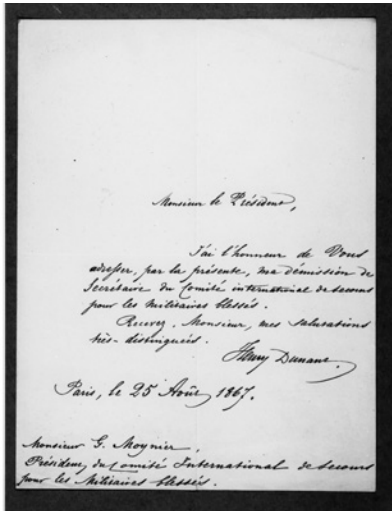 Monsieur le Président,
J'ai l'honneur de Vous
adresser, par la présente, ma démission de
Secrétaire du Comité international de secours
pour les Militaires blessés.
Recevez, Monsieur, mes salutations
très-distinguées.
Henry Dunant
Paris, le 25 Août, 1867.
Monsieur G. Moynier,
Président du Comité International de Secours
pour les Militaires blessés.